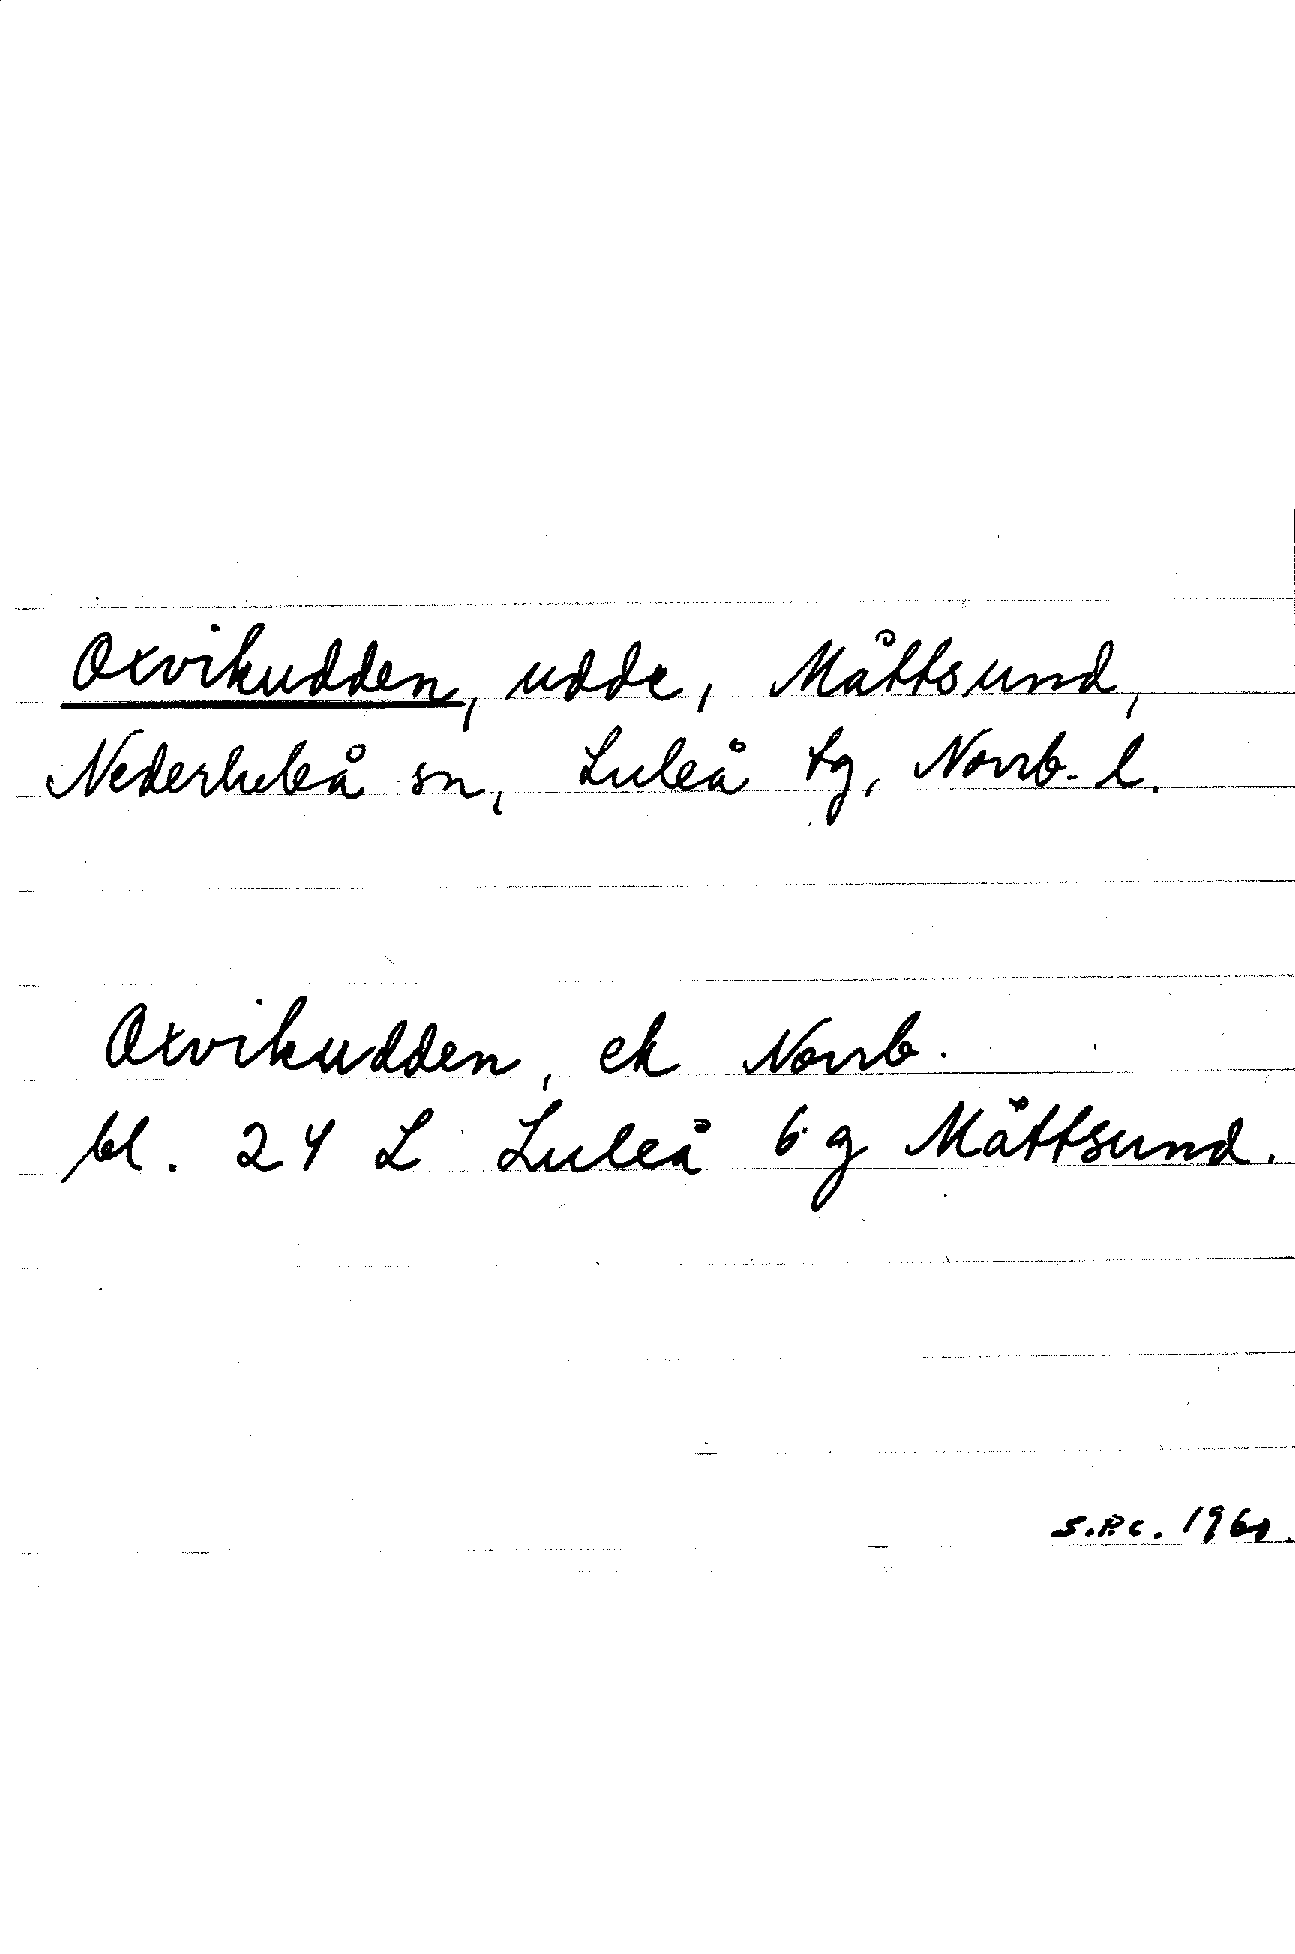 Oxvikudden, udde, Måttsund,
Nederluleå sn, Luleå tg, Norrb. l.
Oxvikudden, ek Norrb.
bl. 24 L Luleå 6 g Måttsund.
1960.